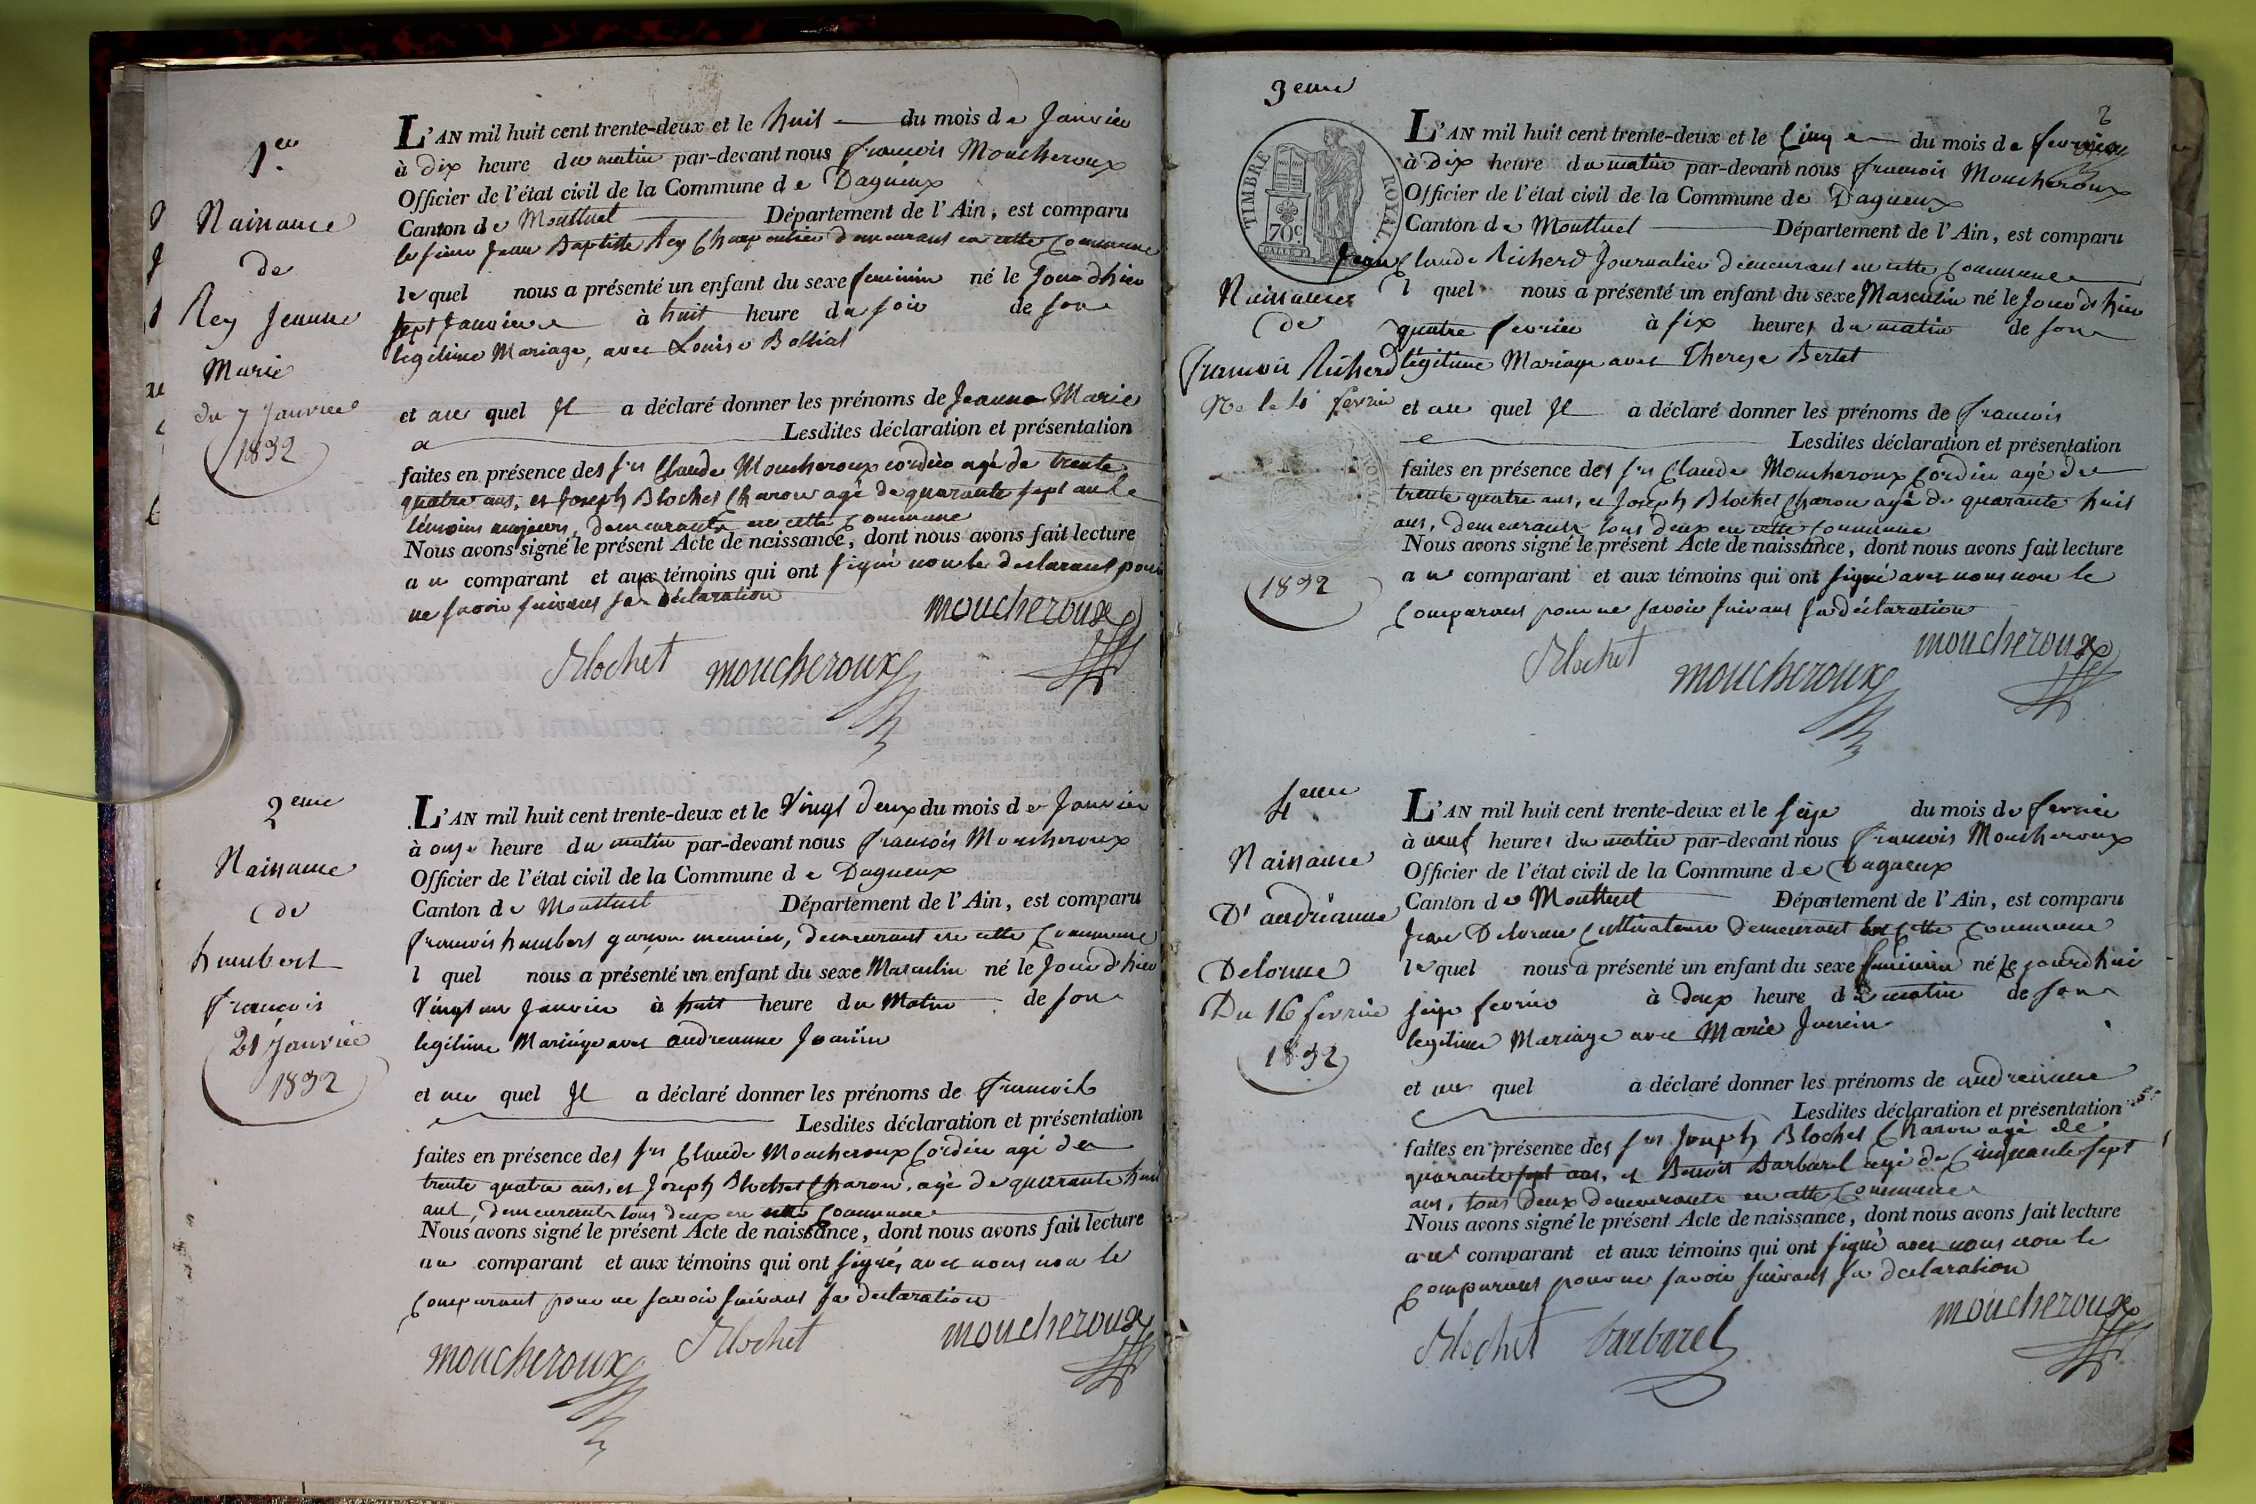 1er
Naissance
de
Rey Jeanne
Marie
du 7 Janvier
1832
L'AN mil huit cent trente-deux et le huit du mois de Janvier
à dix heure du matin par-devant nous François Moucheroux
Officier de l'état civil de la Commune de Dagneux
Canton de Montluel Département de l'Ain, est comparu
le sieur Jean Baptiste Rey Charpentier demeurant en cette Commune
lequel nous a présenté un enfant du sexe feminin né le Jour d'hier
sept Janvier à huit heure du soir de son
legitime Mariage, avec Louise Bollial
et au quel Il a déclaré donner les prénoms de Jeanne Marie
Lesdites déclaration et présentation
faites en présence des srs Claude Moucheroux cordier agé de trente
quatre ans, et Joseph Blochet Charon agé de quarante sept ans
témoins majeurs, demeurants en cette Commune
Nous avons signé le présent Acte de naissance, dont nous avons fait lecture
au comparant et aux témoins qui ont signé non le declarant pour
ne savoir suivant sa déclaration
moucheroux
Blochet moucheroux
2eme
Naissance
de
humbert
francois
21 Janvier
1832
L'AN mil huit cent trente-deux et le Vingt deux du mois de Janvier
à onze heure du matin par-devant nous François Moucheroux
Officier de l'état civil de la Commune de Dagneux
Canton de Montluel Département de l'Ain, est comparu
francois humbert garçon meunier, demeurant en cette Commune
l quel nous a présenté un enfant du sexe Masculin né le Jour d'hier
Vingt un Janvier à huit heure du Matin de son
legitime Mariage avec andreanne Joanin
et au quel Il a déclaré donner les prénoms de francois
Lesdites déclaration et présentation
faites en présence des srs Claude Moucheroux Cordier agé de
trente quatre ans, et Joseph Blochet Charon, agé de quarante huit
ans, demeurants tous deux en cette Commune
Nous avons signé le présent Acte de naissance, dont nous avons fait lecture
au comparant et aux témoins qui ont signés avec nous non le
Comparant pour ne savoir suivant sa declaration
moucheroux Blochet moucheroux
3eme
2
TIMBRE ROYAL
70c
Naissance
de
francois Richerd
Né le 4 fevrier
1832
L'AN mil huit cent trente-deux et le Cinq du mois de fevrier
à dix heure du matin par-devant nous francois Moucheroux
Officier de l'état civil de la Commune de Dagneux
Canton de Montluel Département de l'Ain, est comparu
Jean Claude Richerd Journalier demeurant en cette Commune
l quel nous a présenté un enfant du sexe Masculin né le Jour d'hier
quatre fevrier à six heures du matin de son
légitime Mariage avec Therese Berlet
et au quel Il a déclaré donner les prénoms de francois
Lesdites déclaration et présentation
faites en présence des srs Claude Moucheroux Cordier agé de
trente quatre ans, et Joseph Blochet Charon agé de quarante huit
ans, demeurants tous deux en cette Commune
Nous avons signé le présent Acte de naissance, dont nous avons fait lecture
au comparant et aux témoins qui ont signé avec nous non le
Comparant pour ne savoir suivant sa déclaration
Blochet moucheroux moucheroux
4eme
Naissance
D'andréanne
Delorme
Du 16 fevrier
1832
L'AN mil huit cent trente-deux et le seize du mois de fevrier
à neuf heures du matin par-devant nous francois Moucheroux
Officier de l'état civil de la Commune de Dagneux
Canton de Montluel Département de l'Ain, est comparu
Jean Delorme Cultivateur demeurant en Cette Commune
lequel nous a présenté un enfant du sexe feminin né le jourdhui
seize fevrier à deux heure du matin de son
legitime Mariage avec Marie
et au quel a déclaré donner les prénoms de andreanne
Lesdites déclaration et présentation
faites en présence des srs Joseph Blochet Charon agé de
quarante sept ans, et Benoit Barbarel agé de Cinquante sept
ans, tous deux demeurants en cette Commune
Nous avons signé le présent Acte de naissance, dont nous avons fait lecture
au comparant et aux témoins qui ont signé avec nous non le
Comparant pour ne savoir suivant sa declaration
Blochet barbarel moucheroux